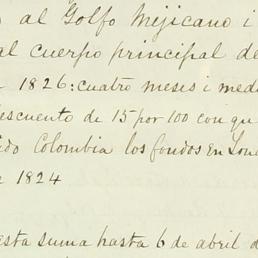 al Golfo Mejicano i
al cuerpo principal de
1826: cuatro meses i med
descuento de 15 por 100 con qu
ido Colombia los fondos en Lon
1824
esta suma hasta 6 de abril d